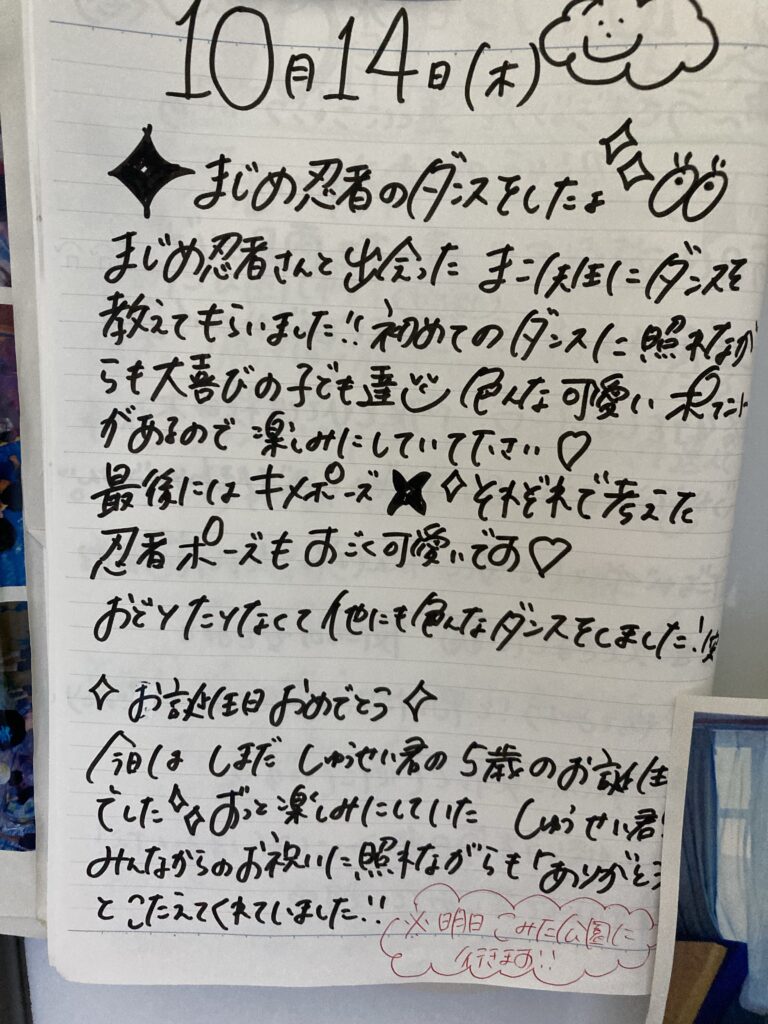 10月14日(木)
まじめ忍者のダンスをしたよ
まじめ忍者さんと出会った まこ先生にダンスを
教えてもらいました!! 初めてのダンスに照れなが
らも大喜びの子ども達 色んな可愛いポイント
があるので楽しみにしていて下さい♡
最後にはキメポーズ それぞれで考えた
忍者ポーズもすごく可愛いです♡
おどりたりなくて他にも色んなダンスをしました!
お誕生日おめでとう
今日は しまだ しゅうせい君の 5歳のお誕生
でした ずっと楽しみにしていた しゅうせい君!
みんなからのお祝いに照れながらも「ありがとう
とこたえてくれていました!!
※明日 こみた公園に
行きます!!